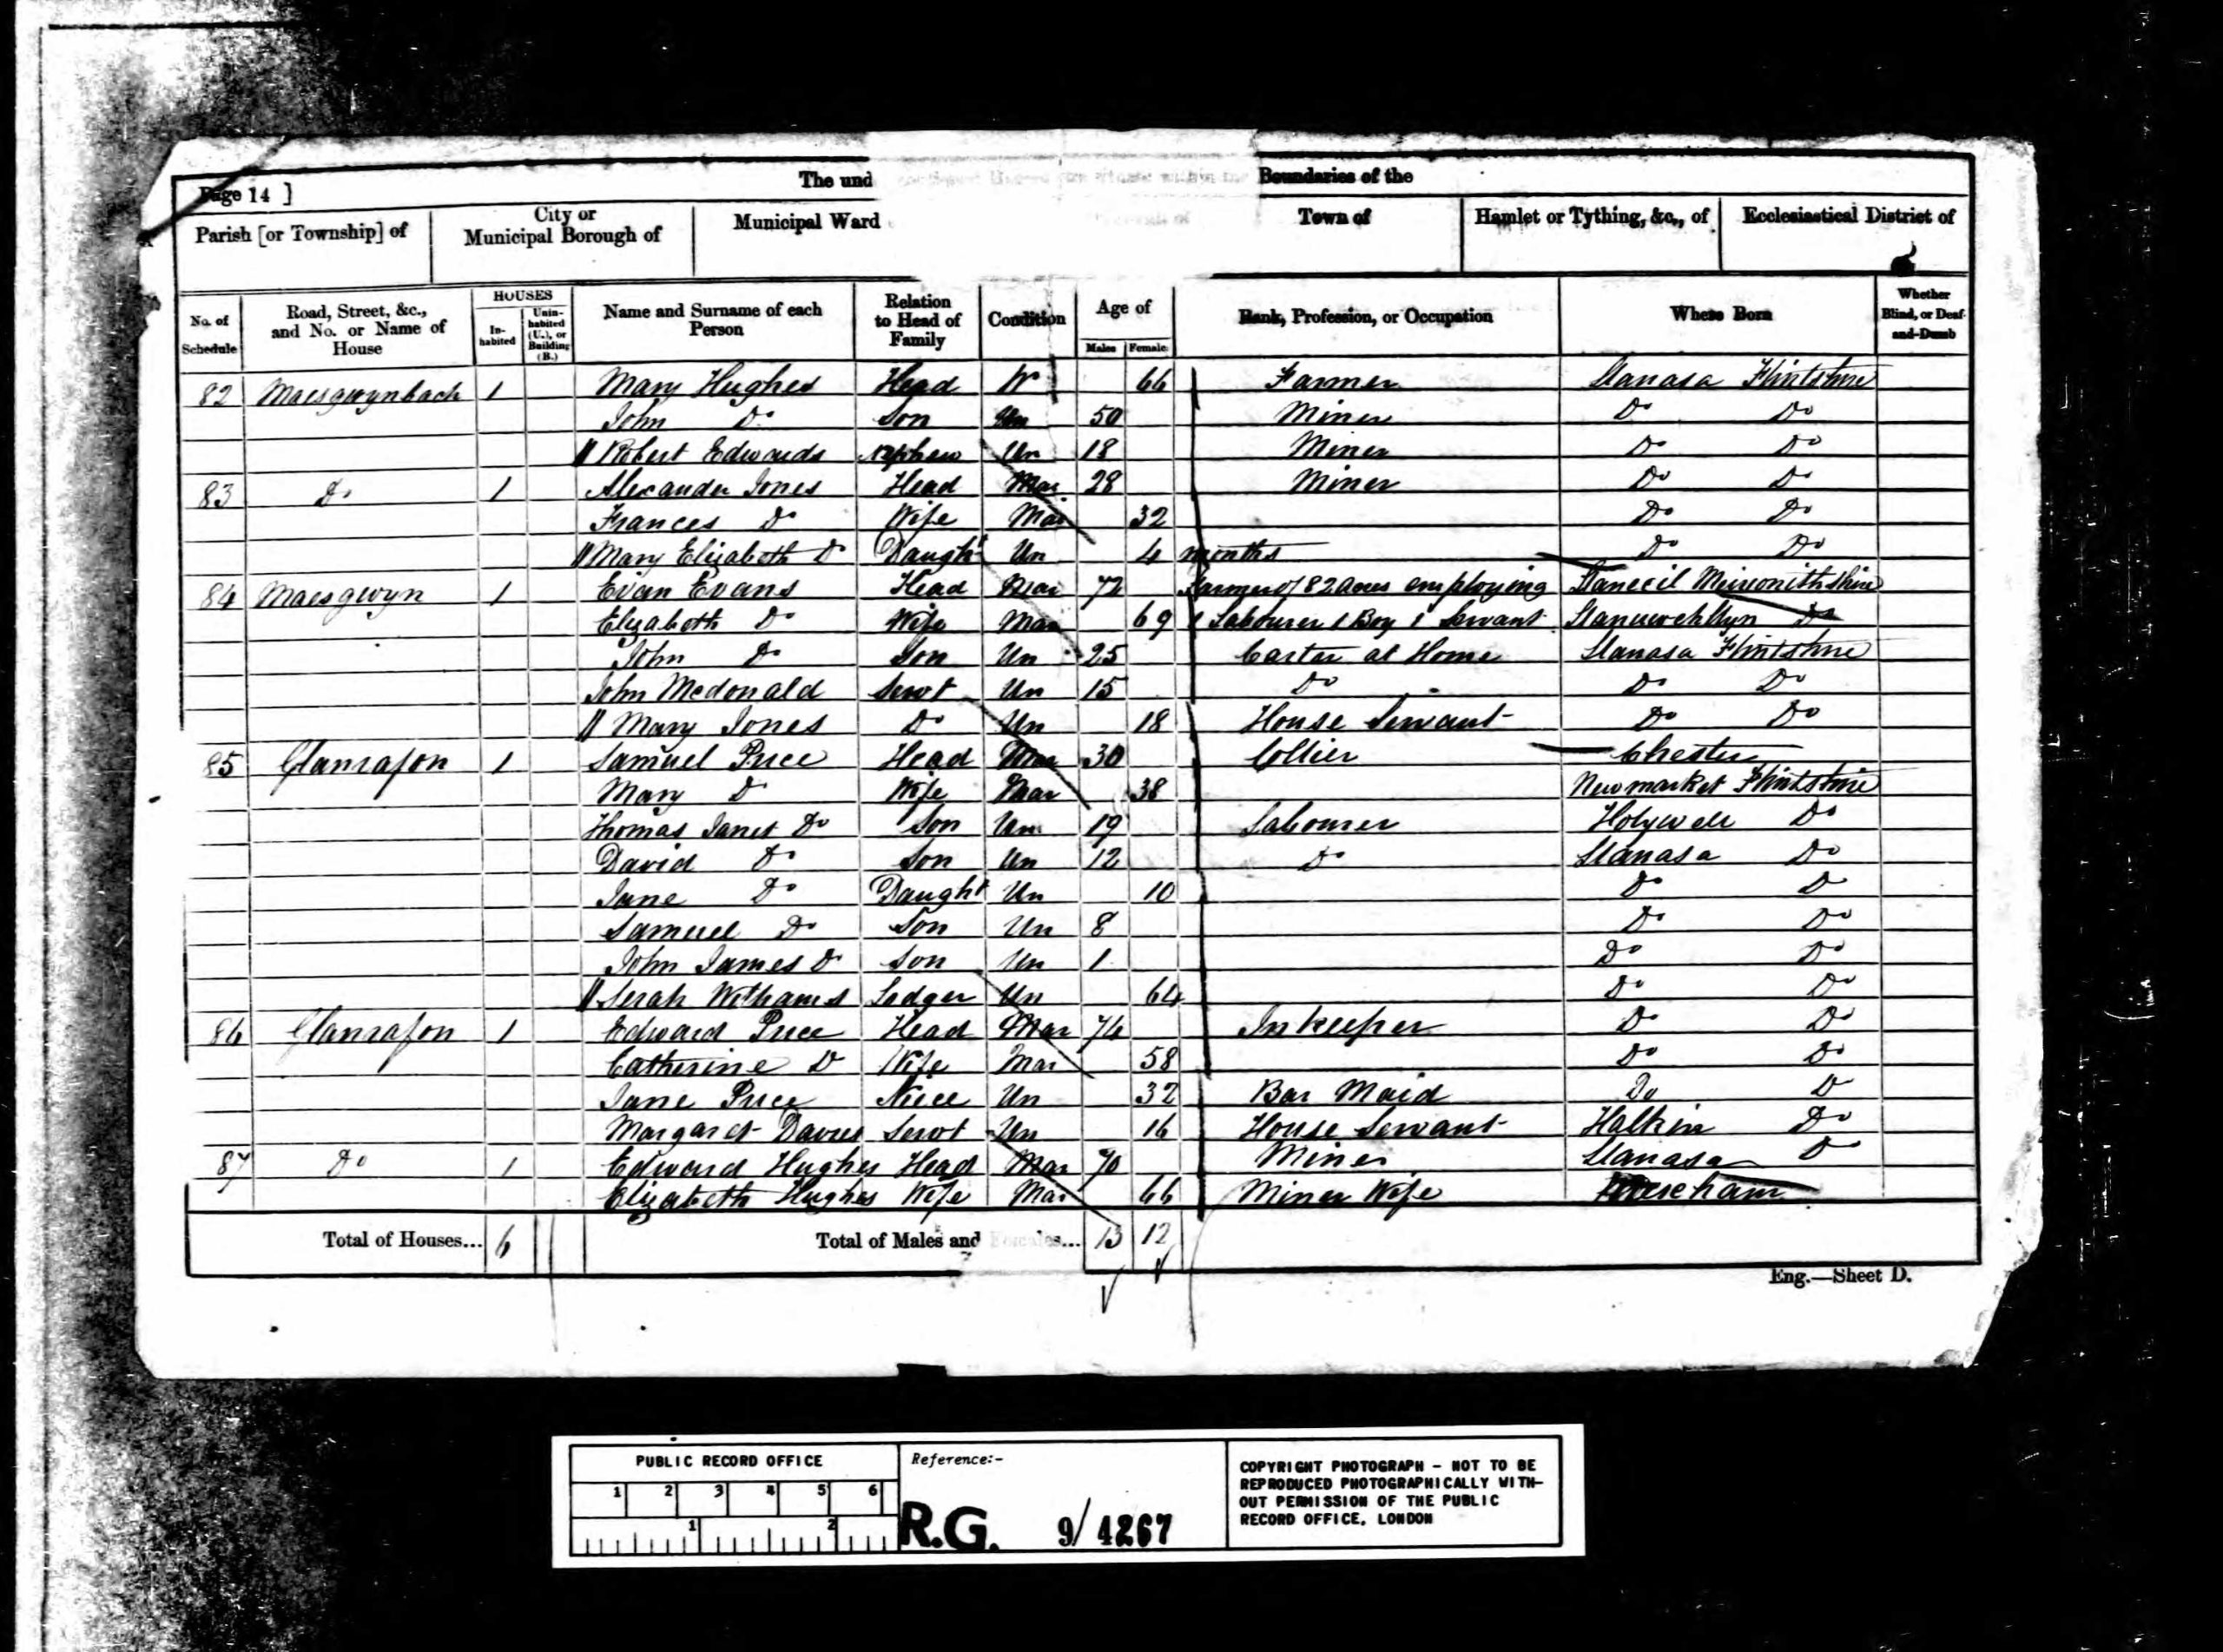 Page 14 ]
The und Boundaries of the
Parish [or Township] of City or Municipal Borough of Municipal Ward Town of Hamlet or Tything, &c., of Ecclesiastical District of
No. of Schedule Road, Street, &c., and No. or Name of House HOUSES In-habited Unin-habited (U.), or Building (B.) Name and Surname of each Person Relation to Head of Family Condition Age of Males Female Rank, Profession, or Occupation Where Born Whether Blind, or Deaf-and-Dumb
82 Maesgwynbach 1 Mary Hughes Head W 66 Farmer Llanasa Flintshire
John Do Son Un 50 Miner Do Do
Robert Edwards Nephew Un 18 Miner Do Do
83 Do 1 Alexander Jones Head Mar 28 Miner Do Do
Frances Do Wife Mar 32 Do Do
Mary Elizabeth Do Daught Un 4 months Do Do
84 Maesgwyn 1 Evan Evans Head Mar 72 Farmer of 82 acres employing Llanecil Meirionithshire
Elizabeth Do Wife Mar 69 1 Labourer 1 Boy 1 Servant Llanuwchllyn Do
John Do Son Un 25 Carter at Home Llanasa Flintshire
John Mcdonald Servt Un 15 Do Do Do
Mary Jones Do Un 18 House Servant Do Do
85 Glanrafon 1 Samuel Price Head Mar 30 Collier Chester
Mary Do Wife Mar 38 Newmarket Flintshire
Thomas Do Son Un 19 Labourer Holywell Do
David Do Son Un 12 Do Llanasa Do
Jane Do Daught Un 10 Do Do
Samuel Do Son Un 8 Do Do
John James Do Son Un 1 Do Do
Serah Williams Lodger Un 64 Do Do
86 Glanrafon 1 Edward Price Head Mar 74 Inkeeper Do Do
Catherine Do Wife Mar 58 Do Do
Jane Price Niece Un 32 Bar Maid Do Do
Margaret Davies Servt Un 16 House Servant Halkin Do
87 Do 1 Edward Hughes Head Mar 70 Miner Llanasa Do
Elizabeth Hughes Wife Mar 66 Miner Wife
Total of Houses... 6 Total of Males and Females... 13 12
Eng.—Sheet D.
PUBLIC RECORD OFFICE
1 2 3 4 5 6
1 2
Reference:-
R.G. 9/4267
COPYRIGHT PHOTOGRAPH - NOT TO BE
REPRODUCED PHOTOGRAPHICALLY WITH-
OUT PERMISSION OF THE PUBLIC
RECORD OFFICE, LONDON